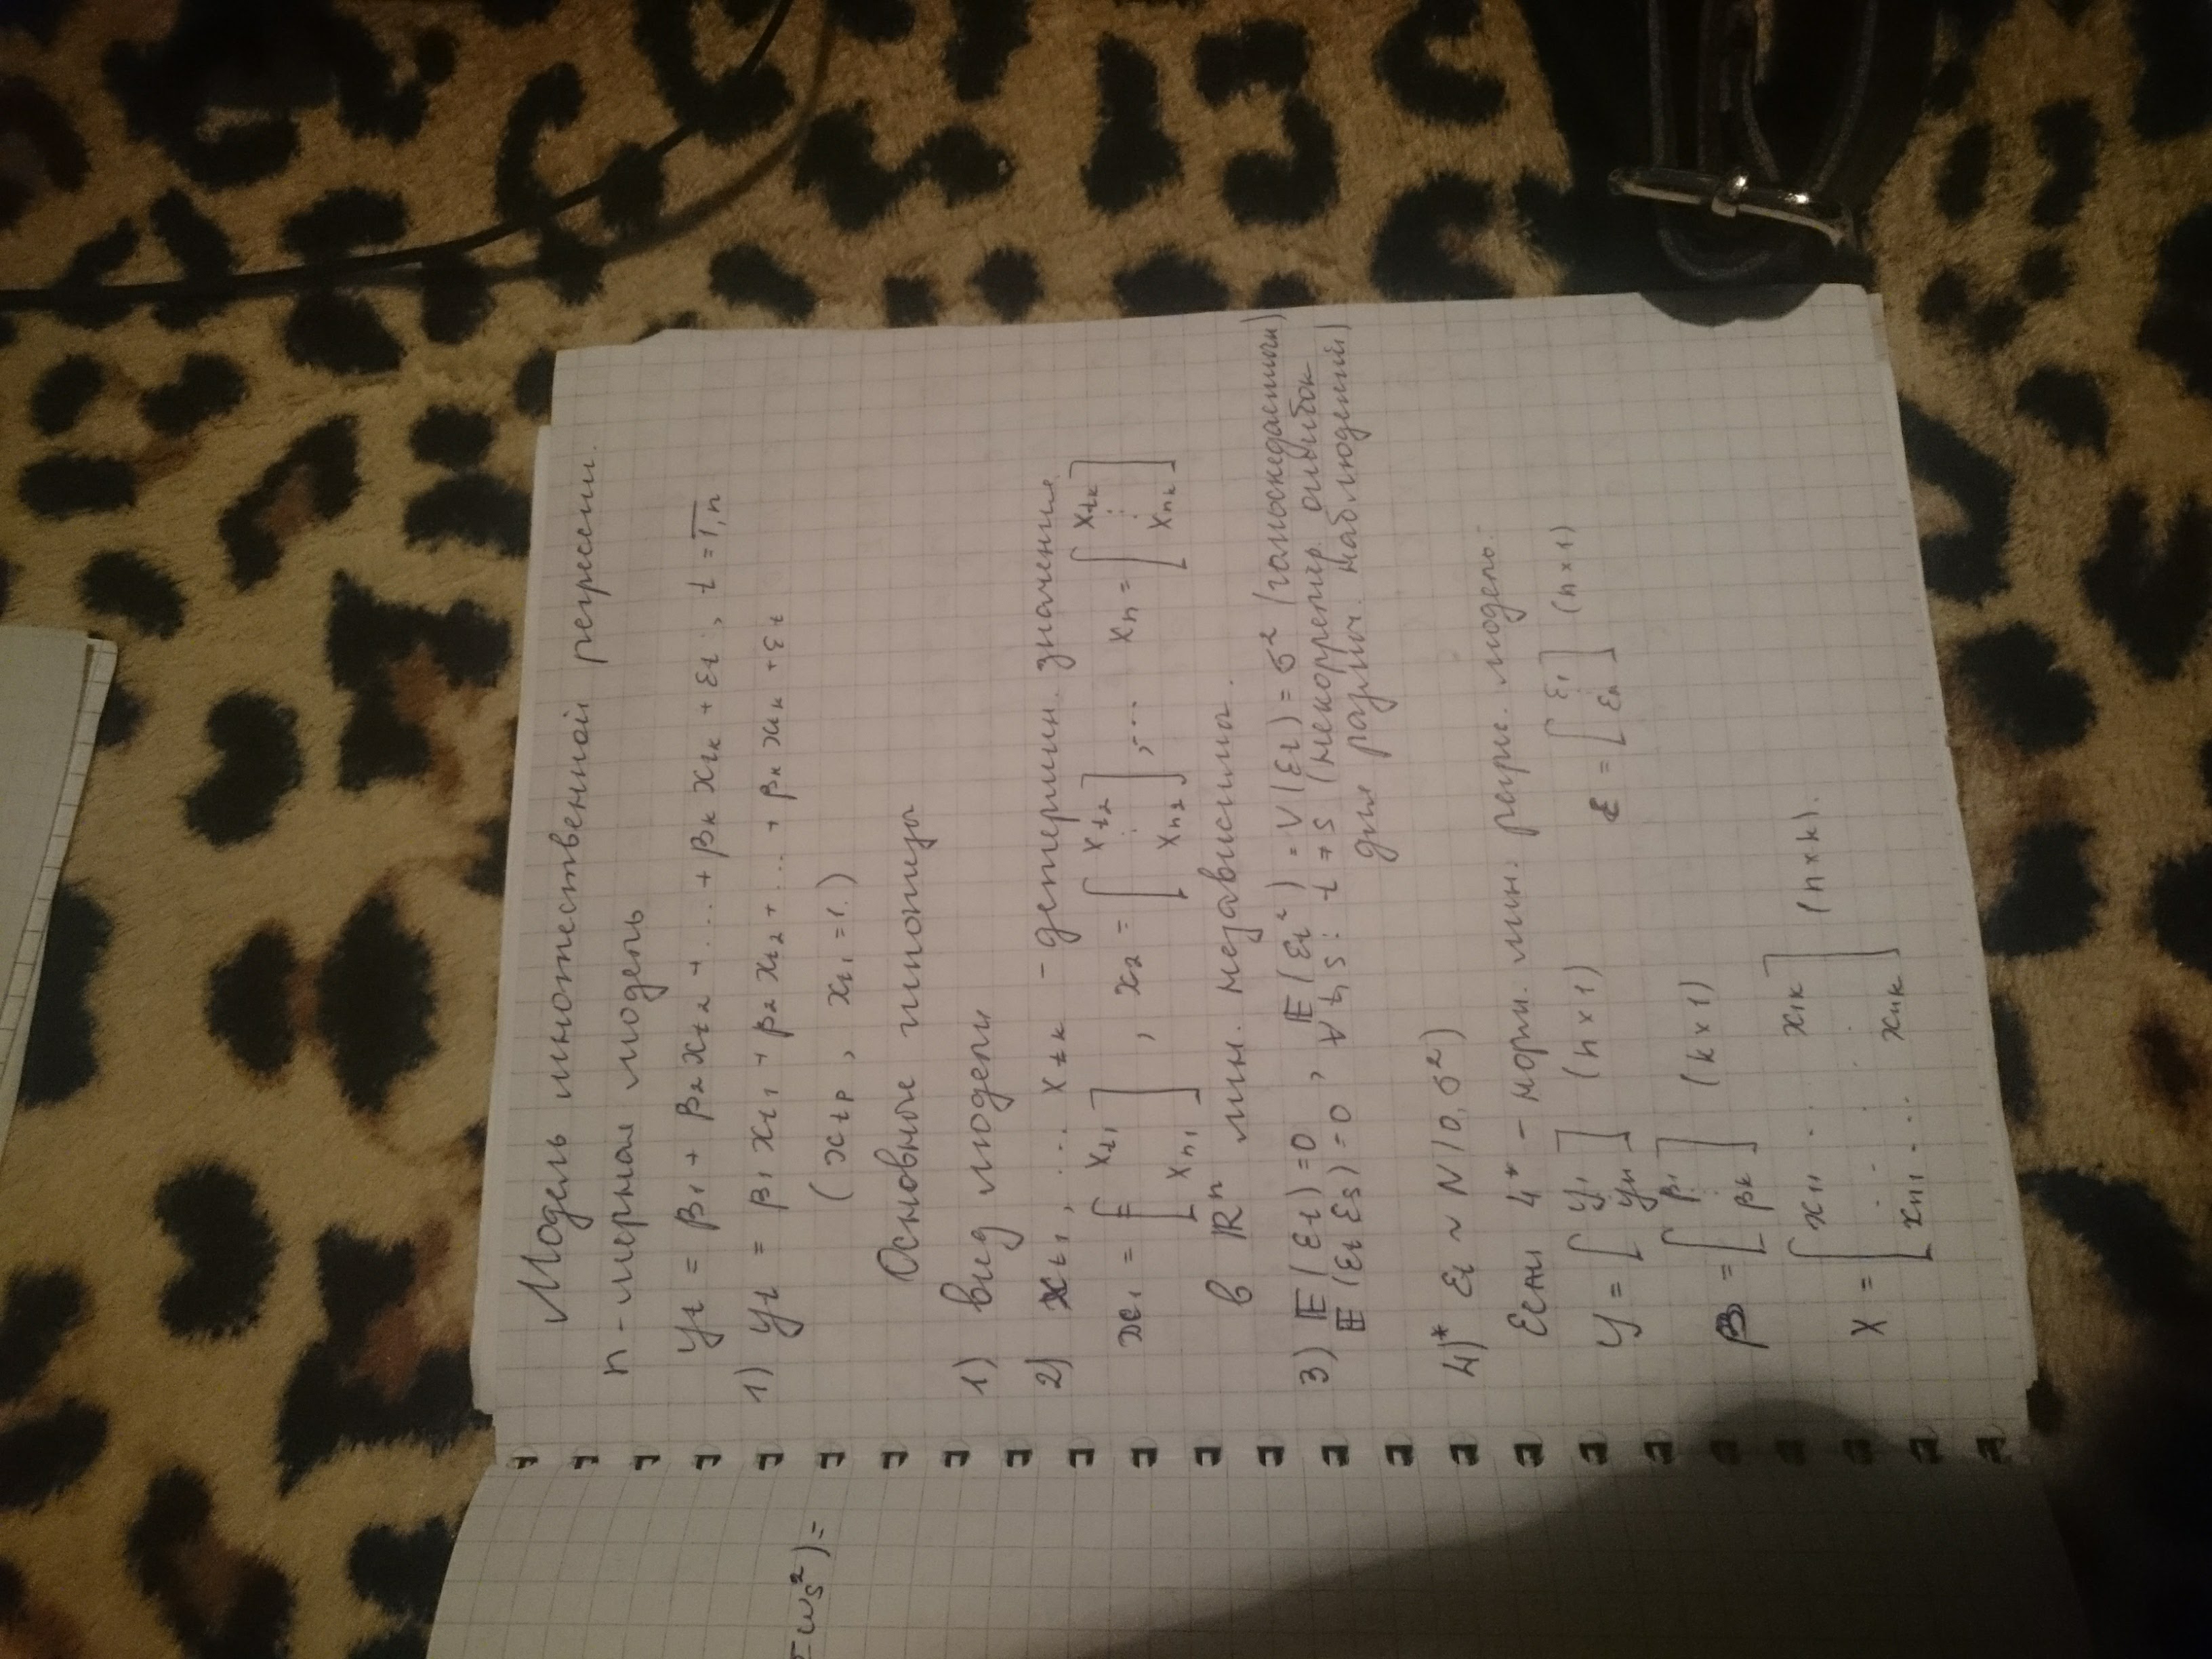 Модель множественной регрессии.
n-мерная модель
yt = β1 + β2 xt2 + ... + βk xtk + εt ; t = 1,n
1) yt = β1 xt1 + β2 xt2 + ... + βk xtk + εt
(xtp , xt1 = 1.)
Основные гипотезы
1) вид модели
2) xt1, ... xtk - детермин. значения
x1 = [xt1 xn1] , x2 = [xt2 : xn2] , ... xn = [xtk : xnk]
в ℝn лин. независимы.
3) 𝔼(εt)=0 , 𝔼(εt²) = V(εt) = σ² (гомоскедастичн)
𝔼(εt εs)=0 , ∀ t,s: t ≠ s (некоррелир. ошибок
для различ. наблюдений)
4)* εt ~ N(0, σ²)
Если 4* - норм. лин. регр. модель:
y = [y1 : yn] (n×1) ε = [ε1 : εn] (n×1)
β = [β1 : βk] (k×1)
X = [x11 ... x1k : xn1 ... xnk] (n×k).
ws²) =